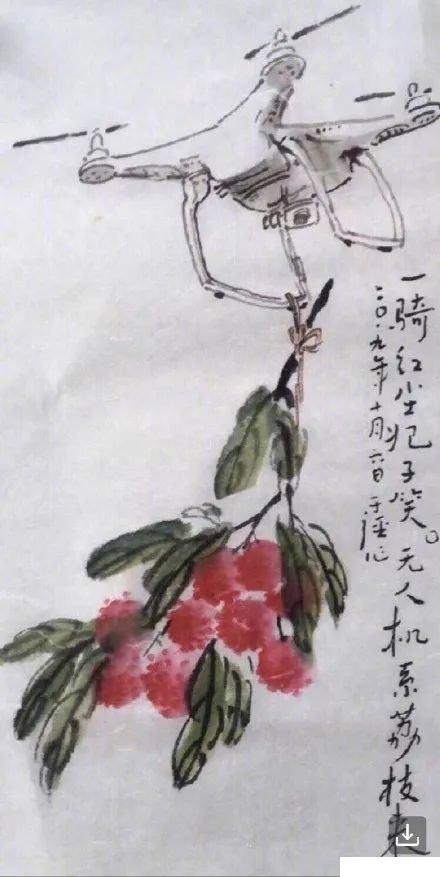 一骑红尘妃子笑。无人机系荔枝来
二〇一九年十月